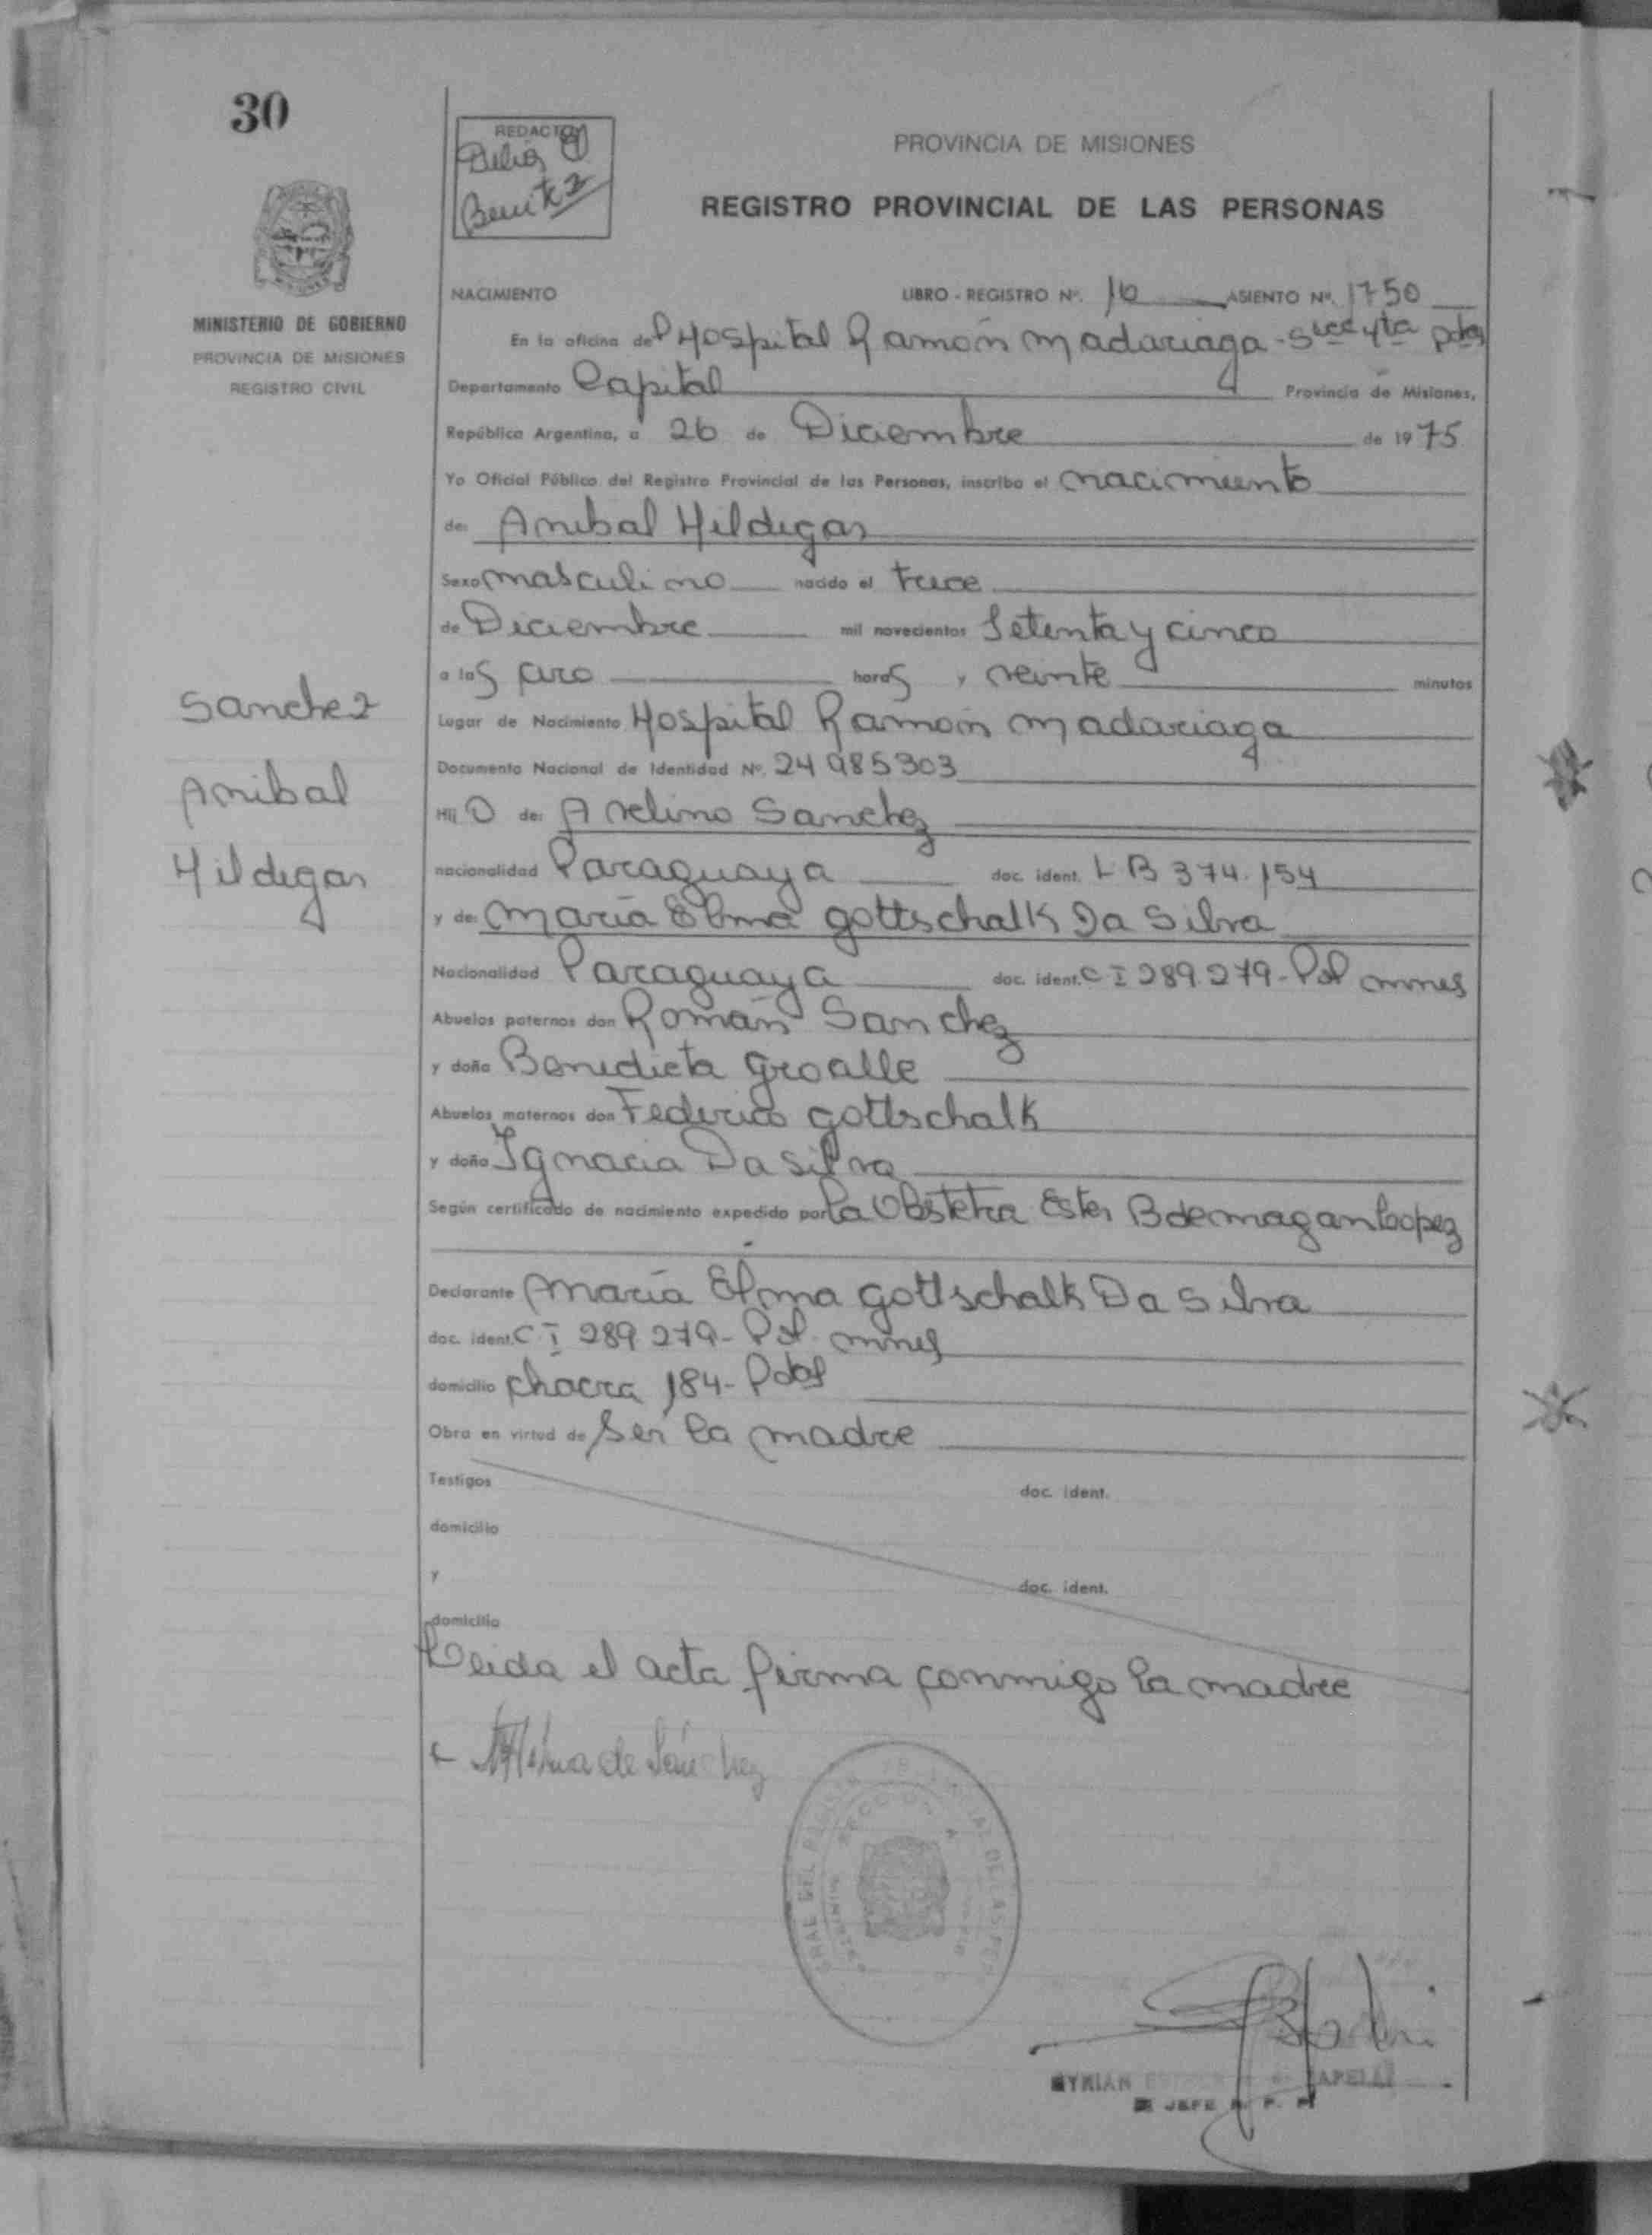 30
REDACTO
Benitez
PROVINCIA DE MISIONES
REGISTRO PROVINCIAL DE LAS PERSONAS
MINISTERIO DE GOBIERNO
PROVINCIA DE MISIONES
REGISTRO CIVIL
NACIMIENTO LIBRO - REGISTRO Nº. 10 ASIENTO Nº. 1750
En la oficina del Hospital Ramón Madariaga - Secc 4ta Pdas
Departamento Capital Provincia de Misiones,
República Argentina, a 26 de Diciembre de 1975
Yo Oficial Público del Registro Provincial de las Personas, inscribo el nacimiento
de: Anibal Hildegar
Sexo masculino nacido el trece
de Diciembre mil novecientos Setenta y cinco
a las cero horas y veinte minutos
Lugar de Nacimiento Hospital Ramón Madariaga
Documento Nacional de Identidad Nº. 24985303
Hij o de: Avelino Sanchez
nacionalidad Paraguaya doc. ident. LB 374.154
y de: María Elma Gottschalk Da Silva
Nacionalidad Paraguaya doc. ident. C I 289.279 - Pol mnes
Abuelos paternos don Román Sanchez
y doña Benedicta
Abuelos maternos don Federico Gottschalk
y doña Ignacia Da Silva
Según certificado de nacimiento expedido por la Obstetra Ester B de
Declarante María Elma Gottschalk Da Silva
doc. ident. C I 289 279 - Pol. mnes
domicilio Chacra 184 - Pdas
Obra en virtud de Ser la madre
Testigos doc. ident.
domicilio
y doc. ident.
domicilio
Leida el acta firma conmigo la madre
de Sánchez
Sanchez
Anibal
Hildegar
JEFE